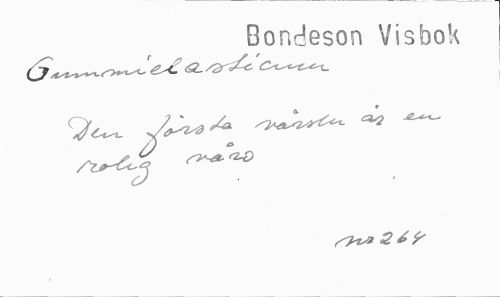 Bondeson Visbok
Gummielasticum
Den första värsen är en
rolig värs
nr 264